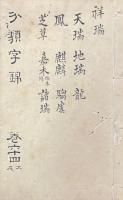 祥瑞
天瑞 地瑞 龍
鳳 麒麟 騶虞
芝草 嘉禾 諸瑞
分類字錦 卷六十四